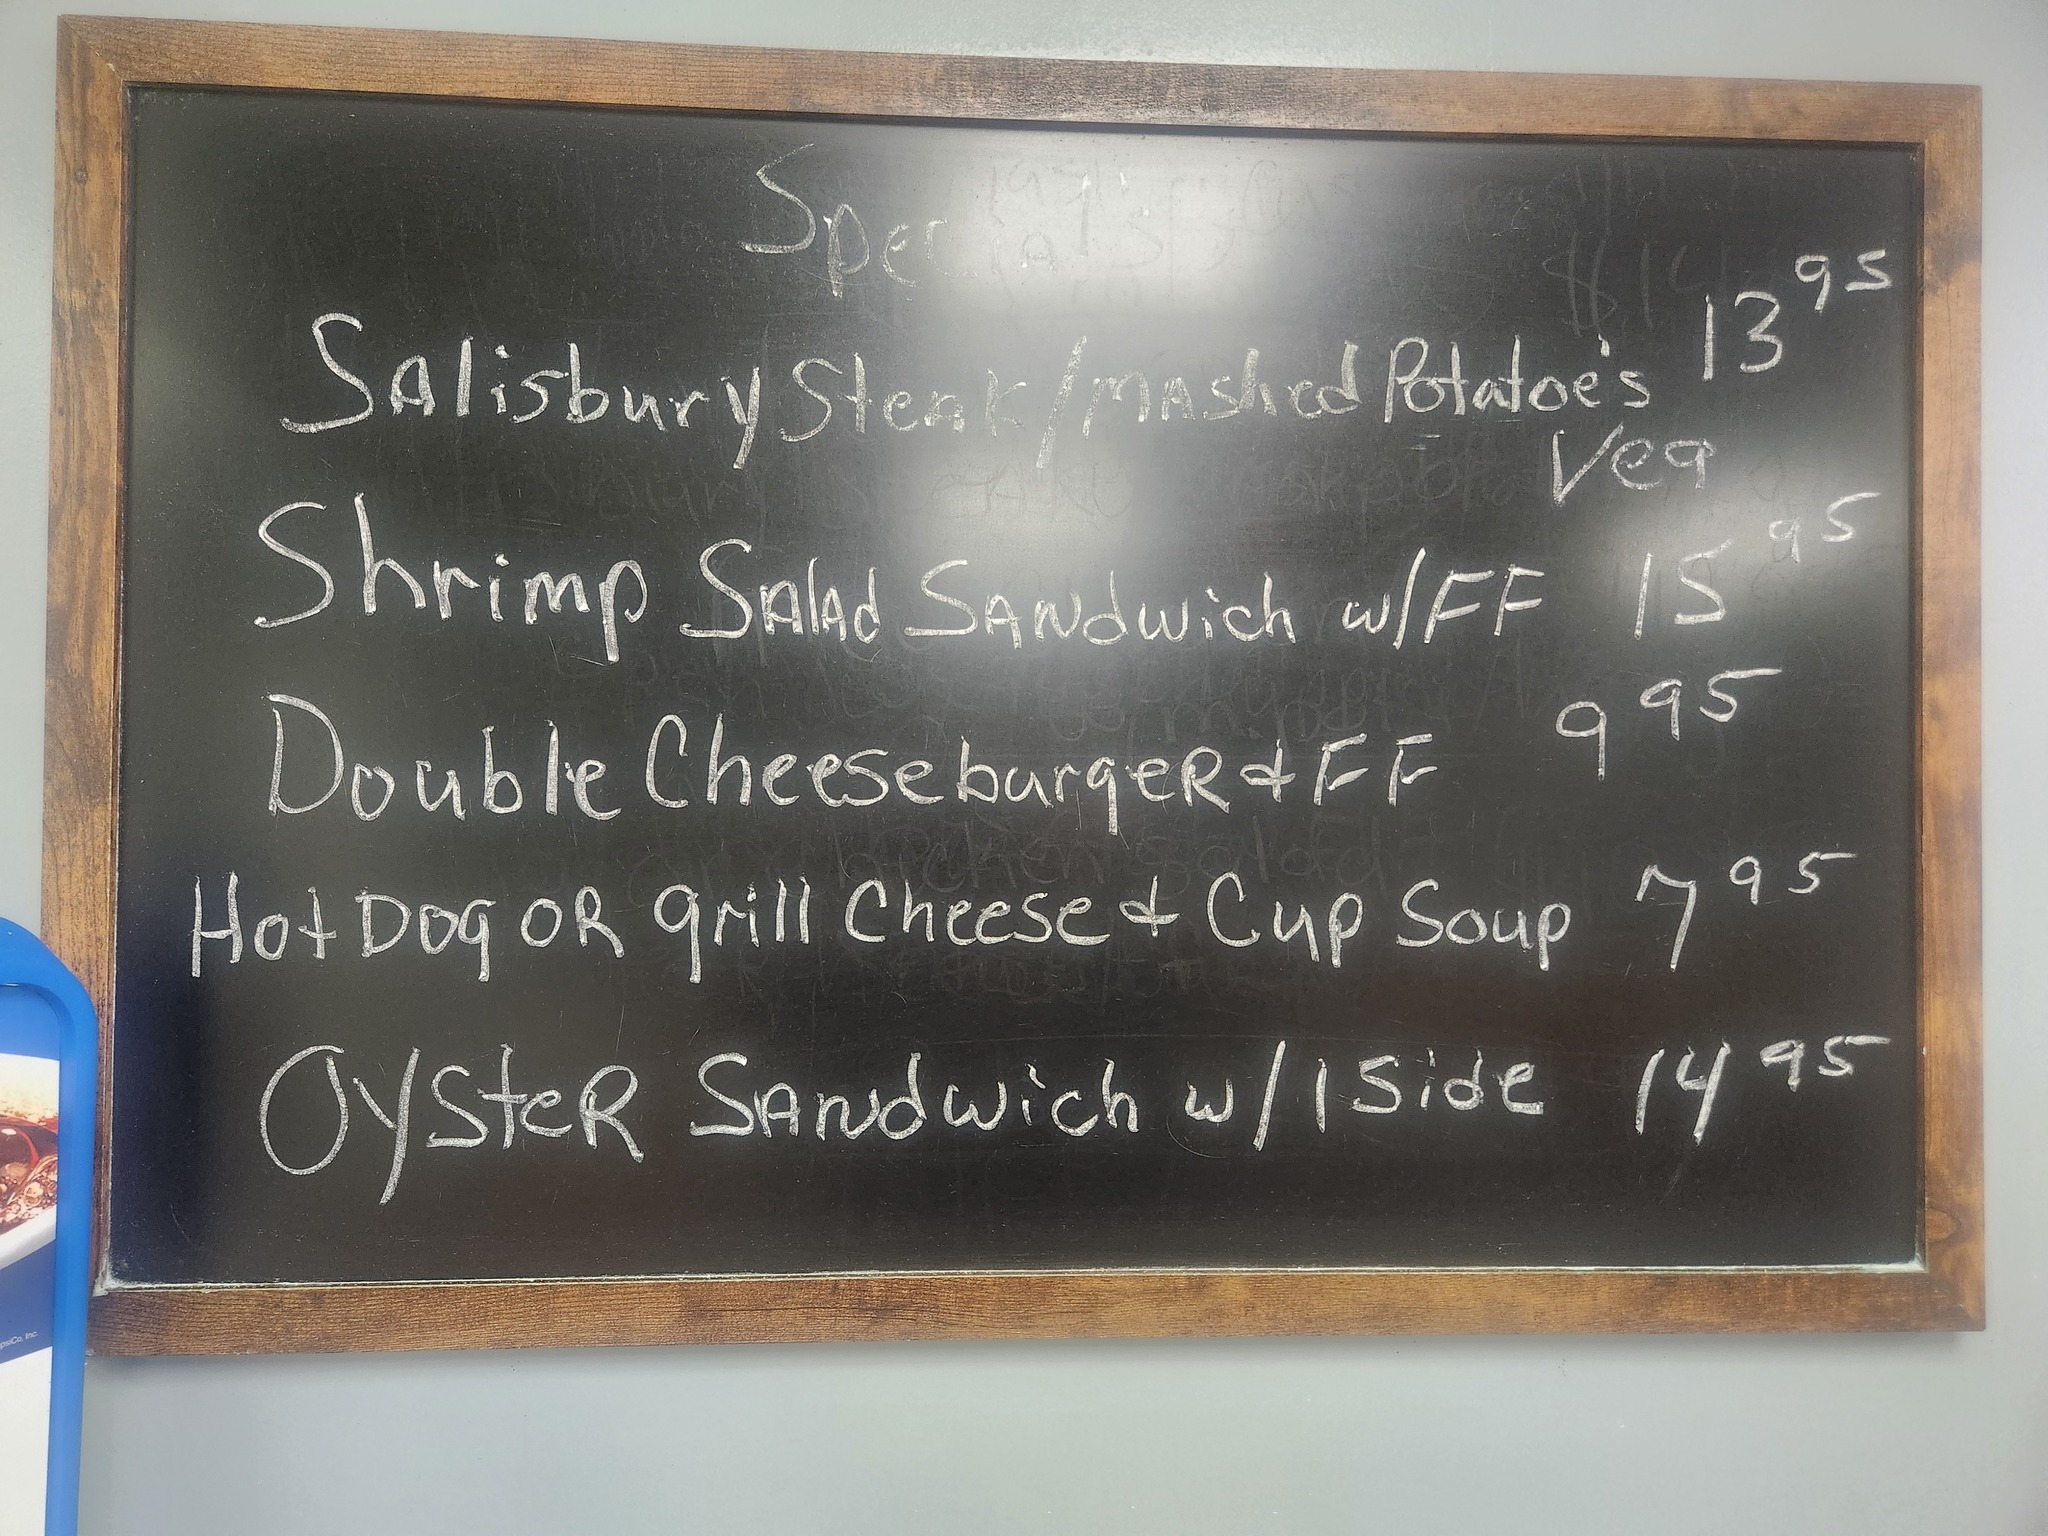 Specials
Salisbury Steak/Mashed Potatoe's 13 95
Veg
Shrimp Salad Sandwich w/FF 15 95
Double Cheeseburger & FF 9 95
Hot Dog OR grill Cheese & Cup Soup 7 95
Oyster Sandwich w/1 Side 14 95
psiCo, Inc.